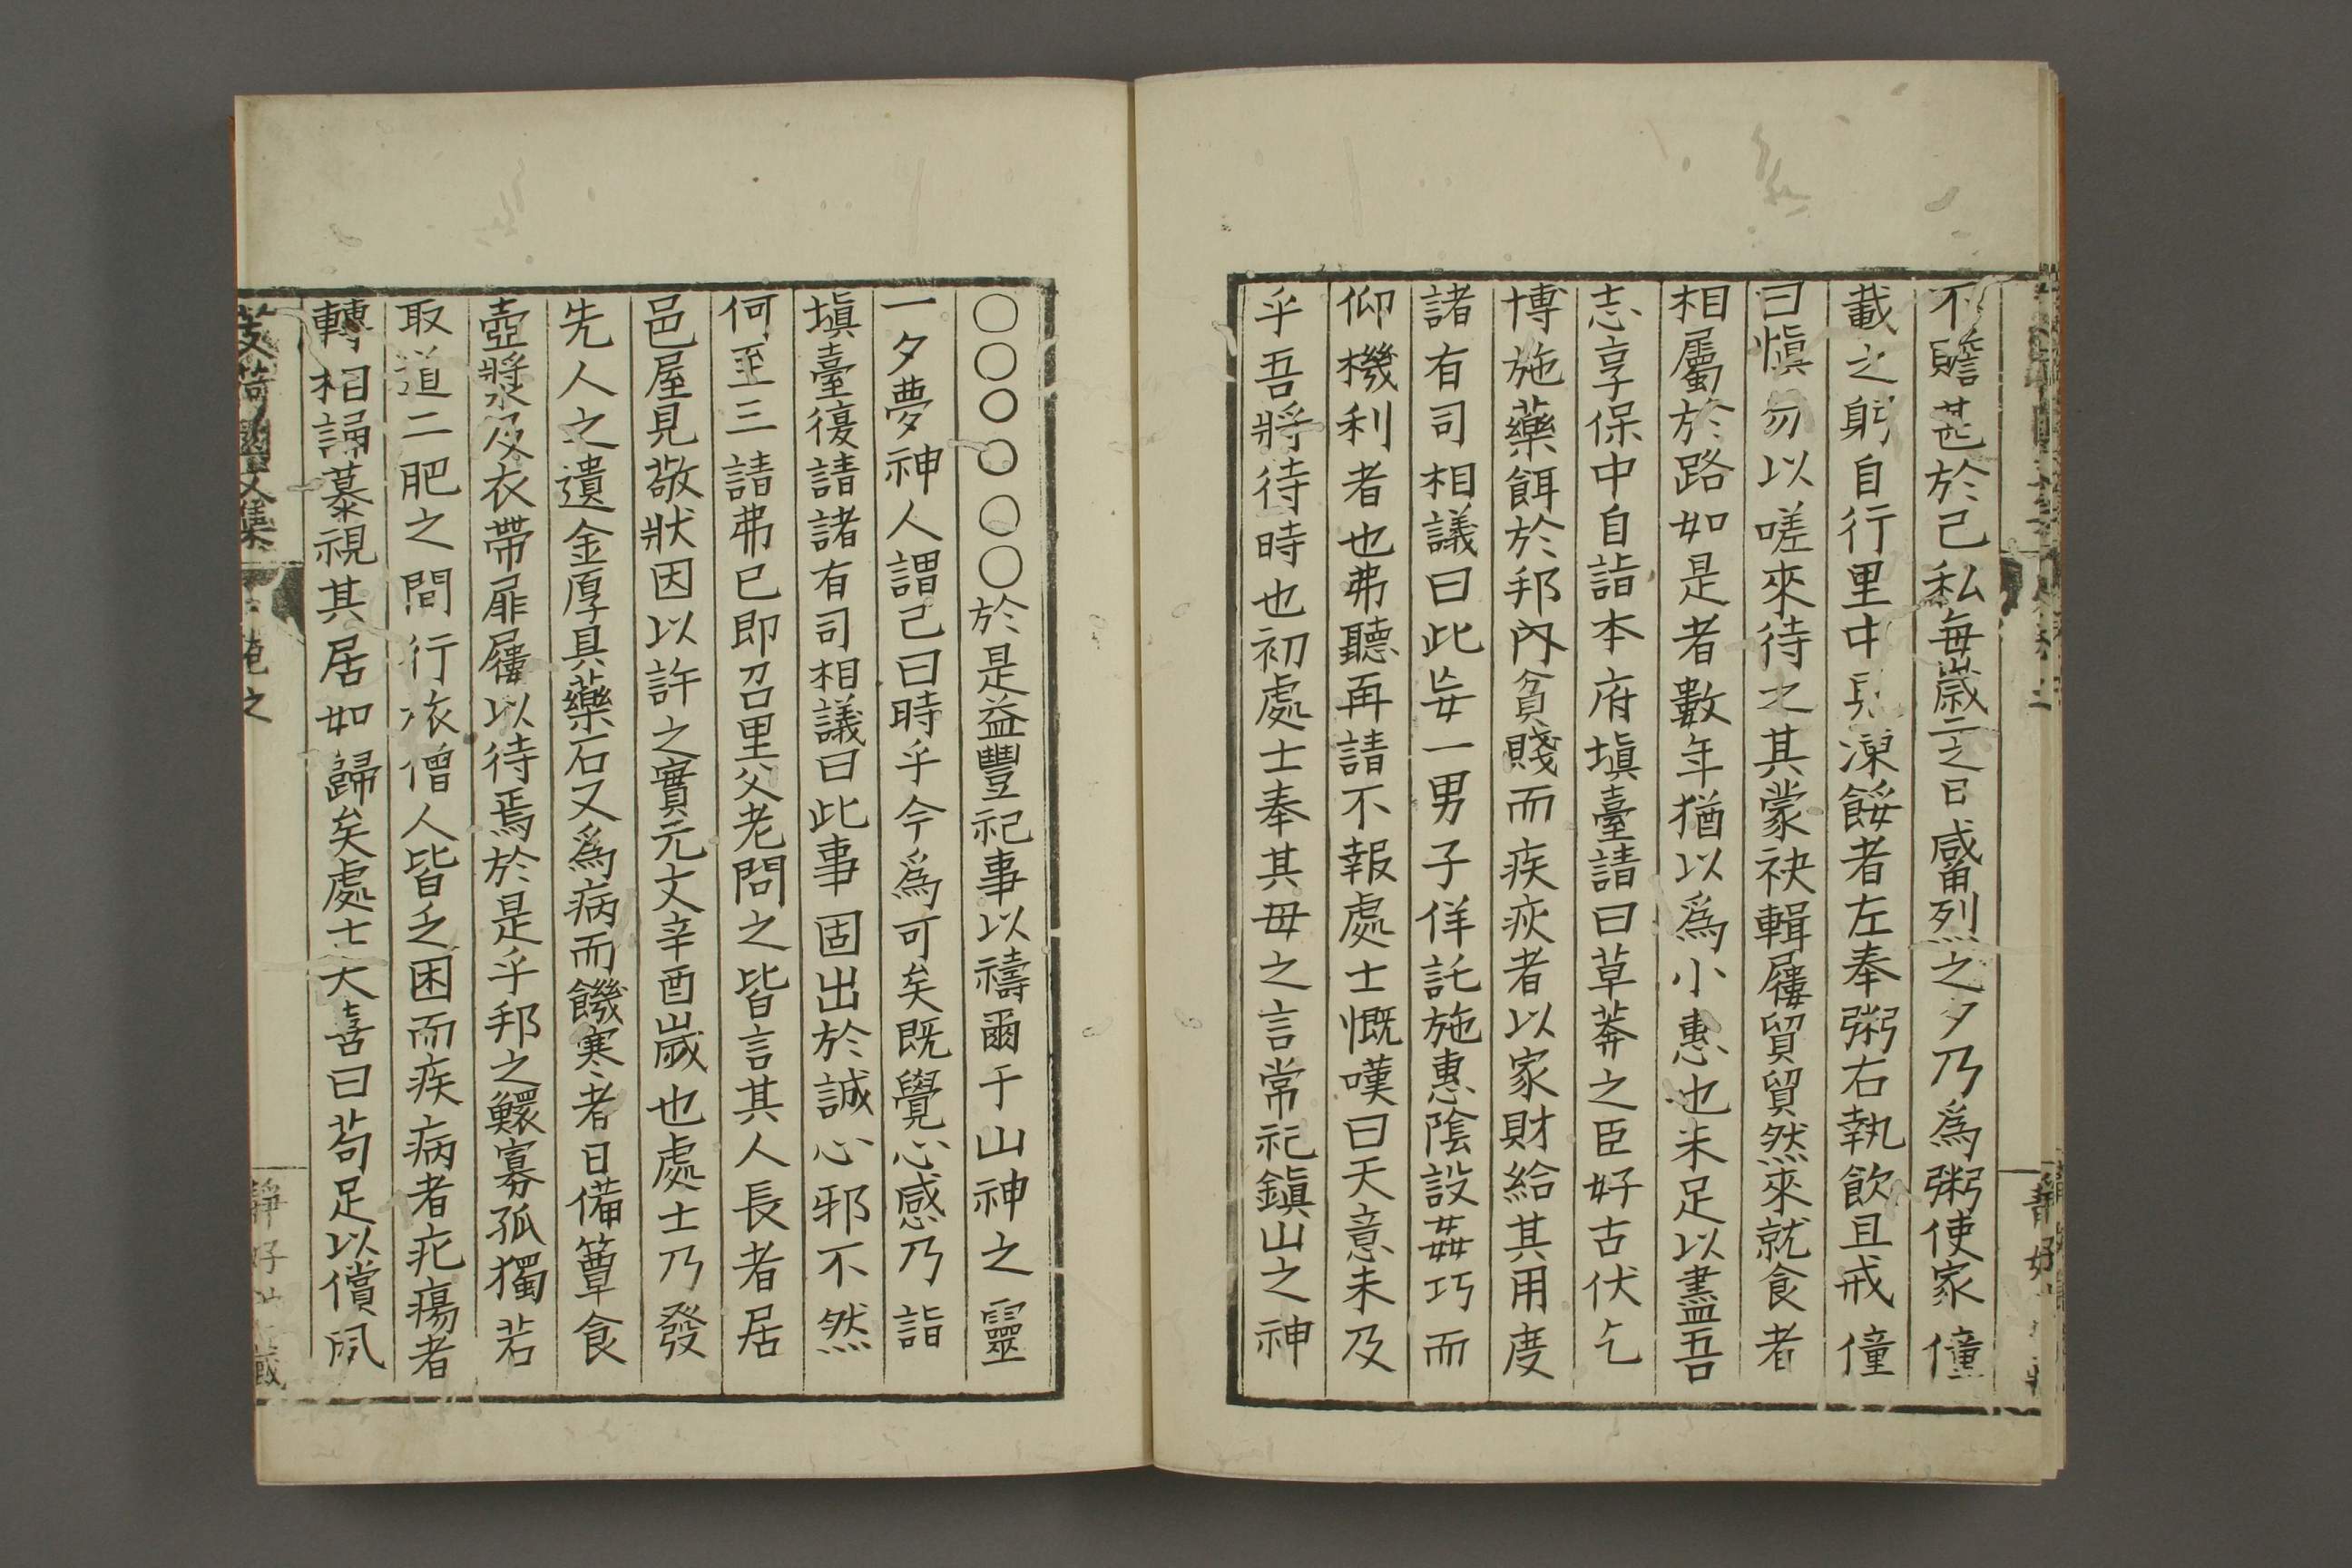 不贍甚於己私每歲三之日觱烈之夕乃爲粥使家僮
載之躬自行里中見凍餒者左奉粥右執飲且戒僮
曰愼勿以嗟來待之其蒙袂輯屨貿貿然來就食者
相屬於路如是者數年猶以爲小惠也未足以盡吾
志享保中自詣本府塡臺請曰草莽之臣好古伏乞
博施藥餌於邦內貧賤而疾疢者以家財給其用度
諸有司相議曰此妄一男子佯託施惠陰設姦巧而
仰機利者也弗聽再請不報處士慨嘆曰天意未及
乎吾將待時也初處士奉其母之言常祀鎭山之神
〇〇〇〇〇〇於是益豐祀事以禱爾于山神之靈
一夕夢神人謂己曰時乎今爲可矣既覺心感乃詣
塡臺復請諸有司相議曰此事固出於誠心邪不然
何至三請弗已卽召里父老問之皆言其人長者居
邑屋見敬狀因以許之實元文辛酉歲也處士乃發
先人之遺金厚具藥石又爲病而饑寒者日備簞食
壺漿及衣帶屝屨以待焉於是乎邦之鰥寡孤獨若
取道二肥之間行旅僧人皆乏困而疾病者疕瘍者
轉相誦慕視其居如歸矣處士大喜曰苟足以償夙
芰荷園文集
靜好
藏